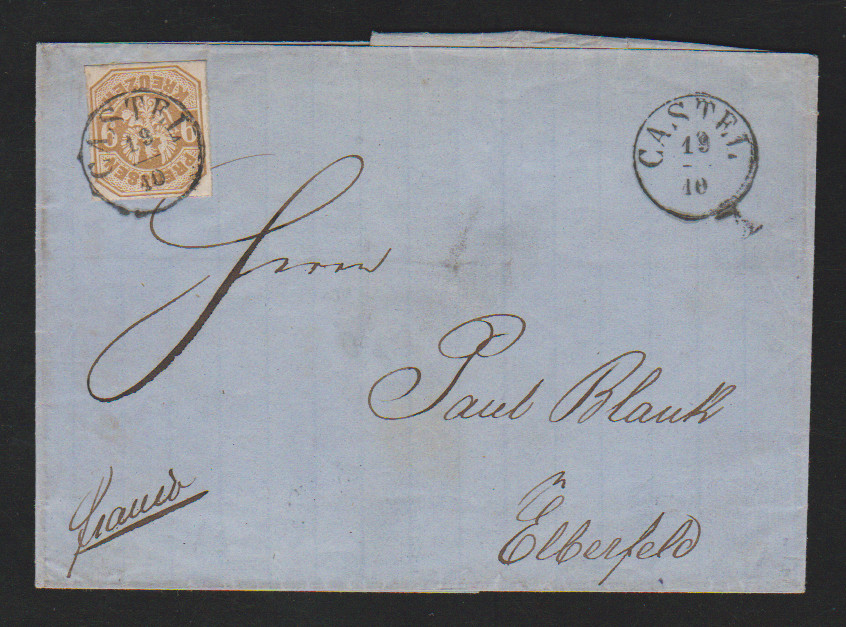 KREUZER
6 6
PREUSSEN
CASTEL
19
10
CASTEL
19
10
Herrn
Paul Blank
in
Elberfeld
franco